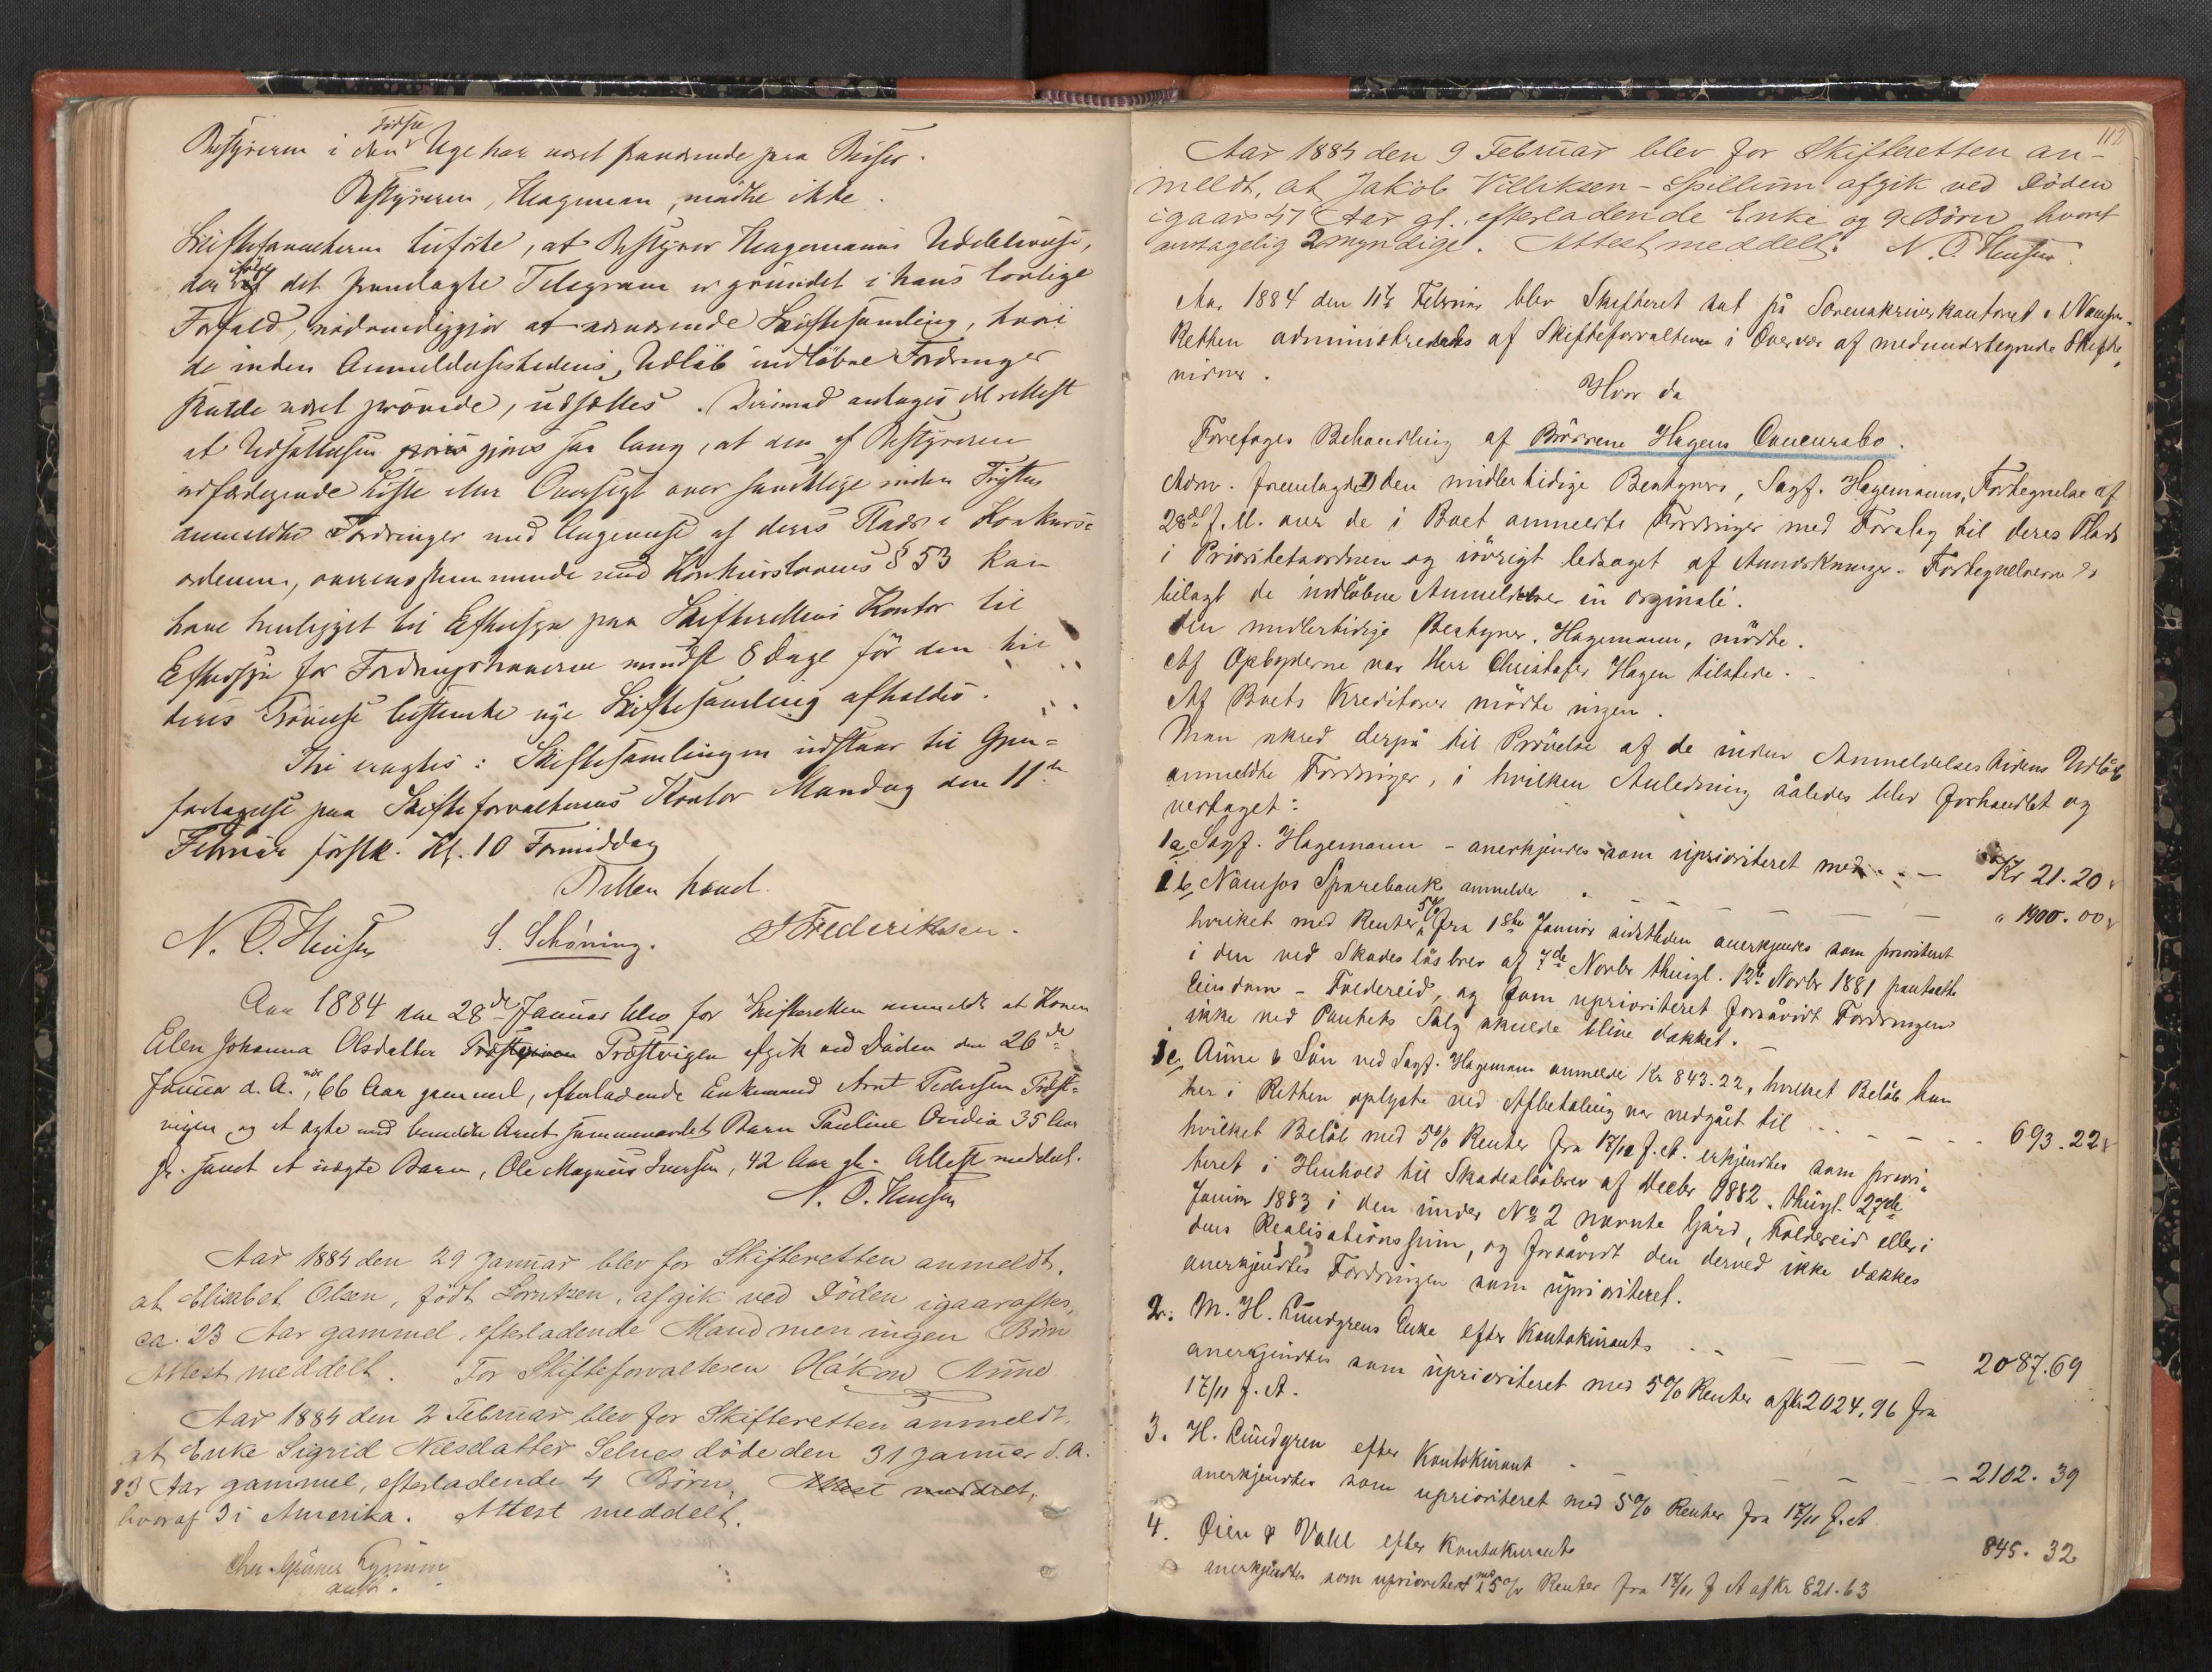 Bestyreren i den sidste Uge har været fraværende paa Reiser.
Bestyreren, Hagemann, mødte ikke.
Skifteforvalteren tilførte, at Bestyrer Hagemanns Udeblivelse,
der ifølge det fremlagte Telegram er grundet i hans lovlige
Forfald, nødvendiggjør at nærværende Skiftesamling, hvori
de inden Anmeldelsestidens Udløb indløbne Fordringer
skulde været prøvede, udsættes. Derimod antages det rettest
at Udsættelsen gjøres saa lang, at den af Bestyreren
udfærdigende Liste eller Oversigt over samtlige inden Fristen
anmeldte Fordringer med Angivelse af deres Plads i Konkurs-
ordenen, overensstemmende med Konkurslovens § 53 kan
have henligget til Eftersyn paa Skifterettens Kontor til
Eftersyn for Fordringshaverne mindst 8 Dage før den til
deres Prøvelse bestemte nye Skiftesamling afholdes.
Thi eragtes: Skiftesamlingen udstaar til Gjen-
fortagelse paa Skifteforvalterens Kontor Mandag den 11te
Februar førstk. Kl. 10 Formiddag
Retten hævet.
N. O. Hansen S. Schøning. Frederiksen.
Aar 1884 den 28de Januar blev for Skifteretten anmeldt at Konen
Elen Johanna Olsdatter Præstvigen afgik ved Døden den 26de
Januar d. A., nær 66 Aar gammel, efterladende Enkemand Arnt Pedersen Præst-
vigen og et ægte med bemeldte Arnt sammenavlet Barn Pauline Ovidia 35 Aar
gl. samt et uægte Barn, Ole Magnus Iversen, 42 Aar gl. Attest meddelt.
N. O. Hansen
Aar 1884 den 29 Januar blev for Skifteretten anmeldt,
at Elisabet Olsen, født Lorntzen, afgik ved Døden igaaraftes,
ca. 23 Aar gammel, efterladende Mand men ingen Børn
Attest meddelt. For Skifteforvalteren Håkon Aune
Aar 1884 den 2 Februar blev for Skifteretten anmeldt,
at Enke Sigrid Nilsdatter Selnes døde den 31 Januar d. A.
83 Aar gammel, efterladende 4 Børn, Attest meddelt,
hvoraf 3 i Amerika. Attest meddelt.
112
Aar 1884 den 9 Februar blev for Skifteretten an-
meldt, at Jakob Villiksen-Spillum afgik ved Døden
igaar 47 Aar gl. efterladende Enke og 9 Børn hvoraf
antagelig 2 myndige. Attest meddelt. N. O. Hansen.
Aar 1884 den 11te Februar blev Skifteret sat på Sorenskriverkontoret i Namsos.
Retten administreredes af Skifteforvalteren i Overvær af medundertegnede Skifte
vidner.
Hvor da
Foretoges Behandling af Brødrene Hagens Concursbo.
Adm. fremlagde den midlertidige Bestyrers, Sagf. Hagemanns, Fortegnelse af
28de f. M. over de i Boet anmeldte Fordringer med Forslag til deres Plads
i Prioritetsordnen og iøvrigt ledsaget af Anmærkninger. Fortegnelserne er
bilagt de indløbne Anmeldelser in originali.
Den midlertidige Bestyrer, Hagemann, mødte.
Af Opbyderne var Herr Christofer Hagen tilstede.
Af Boets Kreditorer mødte ingen.
Man skred derpå til Prøvelse af de inden Anmeldelsestidens Udløb
anmeldte Fordringer, i hvilken Anledning således blev forhandlet og
vedtaget:
1a, Sagf. Hagemann - anerkjendes som uprioriteret med - Kr 21.20
1b, Namsos Sparebank anmelder - " 1900.00
hvilket med Renter 5% fra 1ste Januar sidstleden anerkjendes som prioriteret
i den ved Skadesløsbrev af 7de Novbr thingl. 12te Novbr 1881 pantsatte
Eiendom - Foldereid, og som uprioriteret forsåvidt Fordringen
ikke ved Pantets Salg skulde blive dækket.
1c, Aune & Søn ved Sagf. Hagemann anmelder Kr 843.22, hvilket Beløb han
her i Retten oplyste ved Afbetaling var nedgået til - 693.22
hvilket Beløb med 5% Renter fra 17/12 f. A. erkjendtes som priori-
teret i Henhold til Skadesløsbrev af Decbr 1882. thingl. 27de
Januar 1883 i den under No 2 nævnte Gård, Foldereid eller i
dens Realisationssum, og forsåvidt den derved ikke dækkes
anerkjendtes Fordringen som uprioriteret.
2. M. H. Lundgrens Enke efter Kontokurant - 2087.69
anerkjendtes som uprioriteret med 5% Renter af Kr 2024,96 fra
17/11 f. A.
3. H. Lundgren efter Kontokurant - 2102.39
anerkjendtes som uprioriteret med 5% Renter fra 17/11 f. A.
4. Øien & Wahl efter Kontokurant 845.32
anerkjendtes som uprioriteret med 5% Renter fra 17/11 f A af Kr 821.63